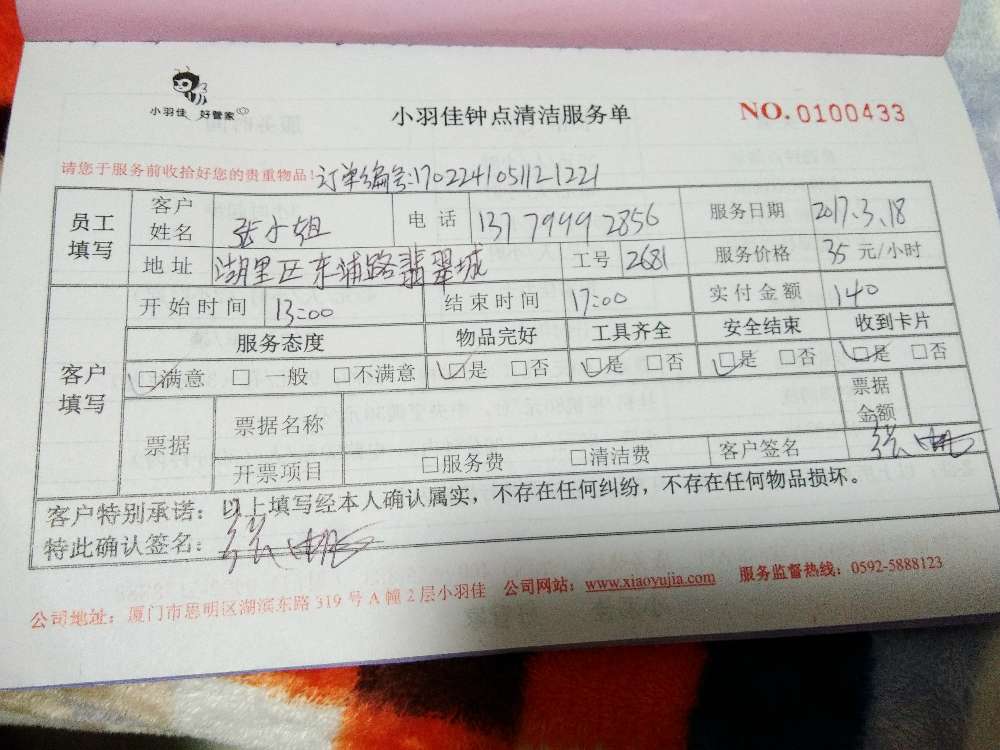 小羽佳 好管家
小羽佳钟点清洁服务单
NO. 0100433
请您于服务前收拾好您的贵重物品! 订单编号:1702241051121221
员工填写 客户姓名 张小姐 电话 13779992856 服务日期 2017.3.18
地址 湖里区东浦路翡翠城 工号 2681 服务价格 35 元/小时
客户填写 开始时间 13:00 结束时间 17:00 实付金额 140
服务态度 物品完好 工具齐全 安全结束 收到卡片
☑满意 □ 一般 □不满意 ☑是 □否 ☑是 □否 ☑是 □否 ☑是 □否
票据 票据名称 票据金额
开票项目 □服务费 □清洁费 客户签名 张
客户特别承诺:以上填写经本人确认属实,不存在任何纠纷,不存在任何物品损坏。
特此确认签名: 张
公司地址:厦门市思明区湖滨东路 319 号 A 幢 2 层小羽佳 公司网站:www.xiaoyujia.com 服务监督热线:0592-5888123